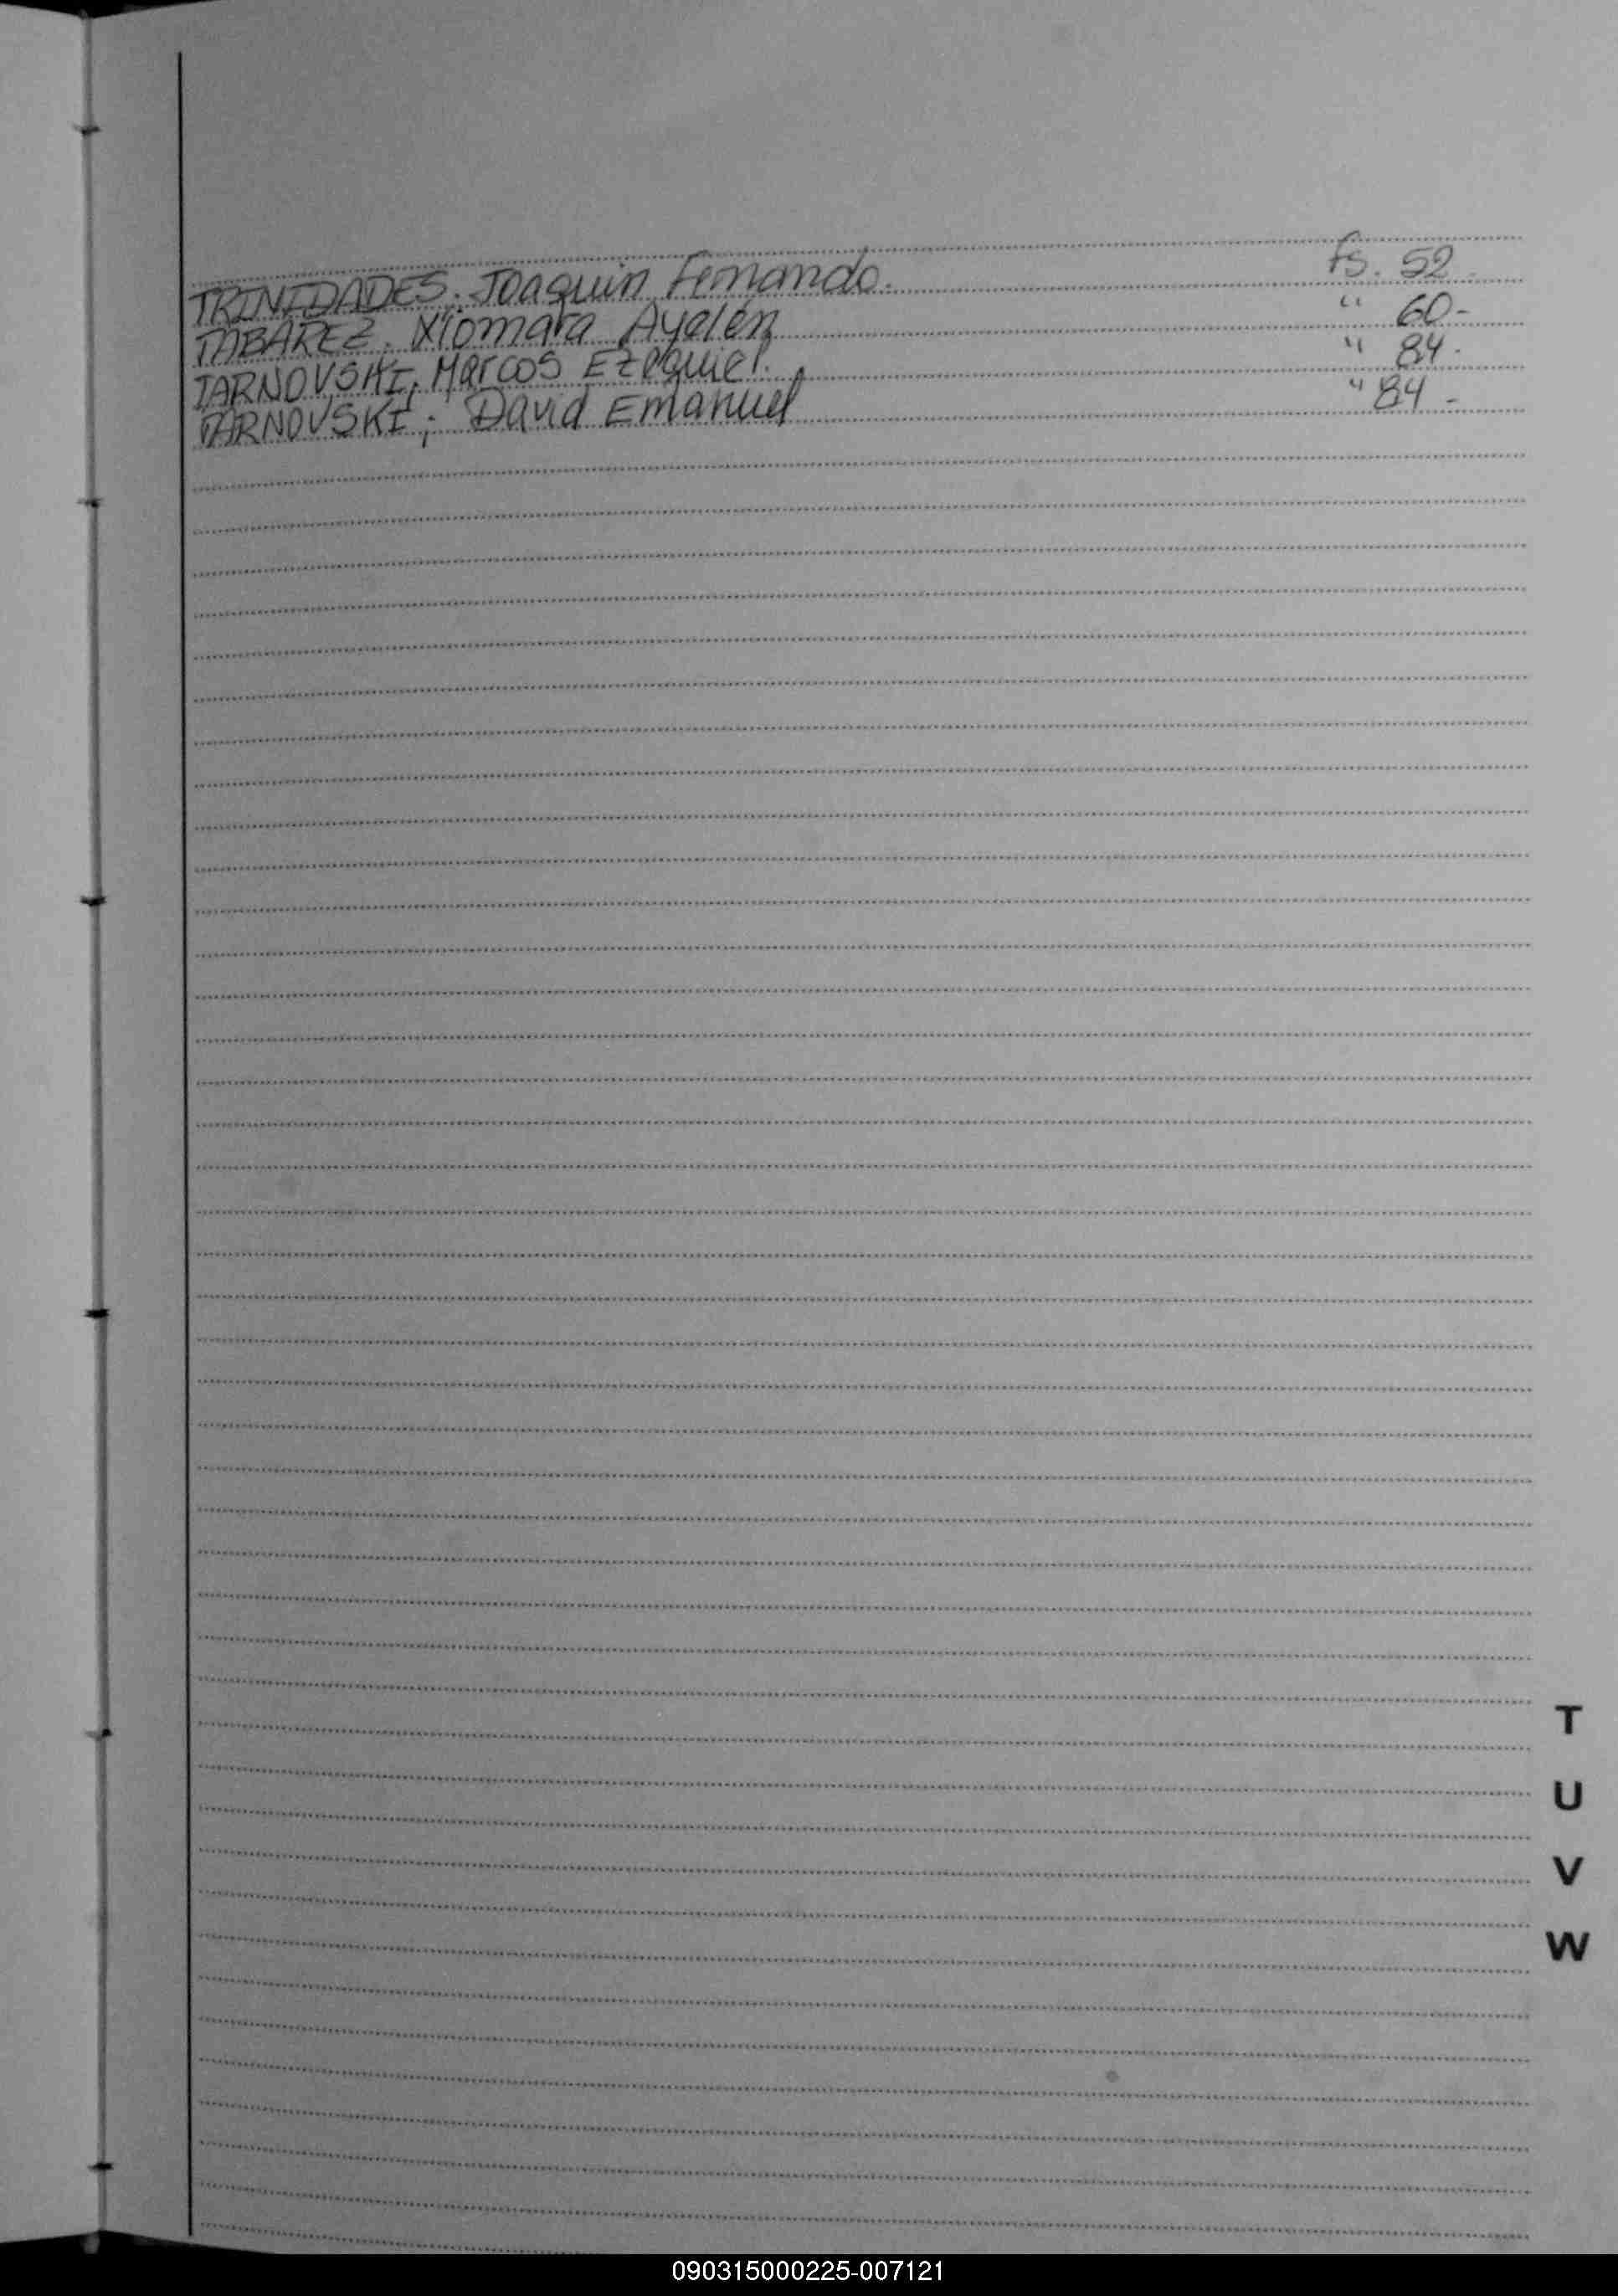 TRINIDADES. Joaquin Fernando. fs. 52.
TABAREZ. Xiomara Ayelén " 60-
TARNOVSKI, Marcos Ezequiel. " 84.
TARNOVSKI; David Emanuel " 84-
T
U
V
W
090315000225-007121